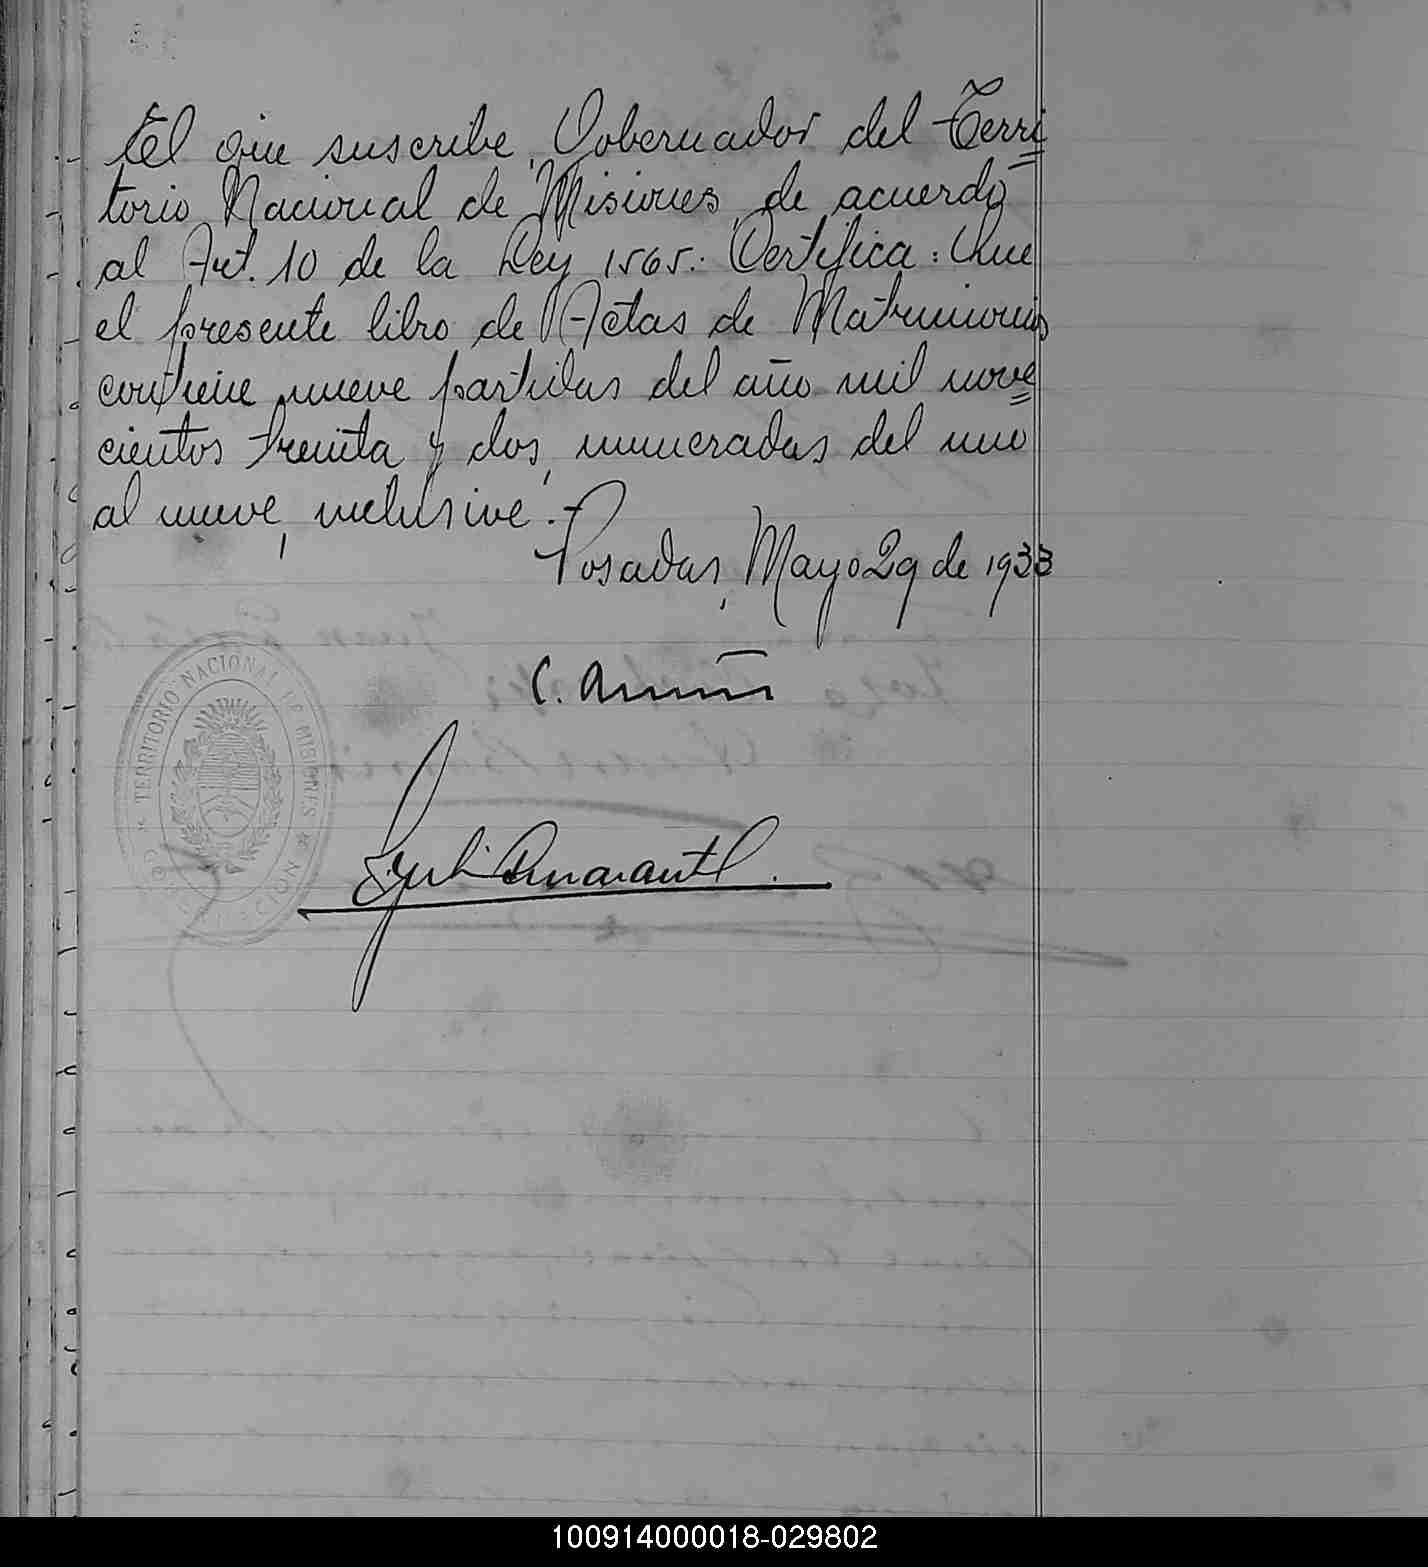 El que suscribe, Gobernador del Terri=
torio Nacional de Misiones, de acuerdo
al Art. 10 de la Ley 1565.: Certifica: Que
el presente libro de Actas de Matrimonios
contiene nueve partidas del año mil nove=
cientos treinta y dos, numeradas del uno
al nueve, inclusive.-
Posadas, Mayo 29 de 1933
C.
TERRITORIO NACIONAL DE MISIONES
GOBERNACION
Amarante
100914000018-029802